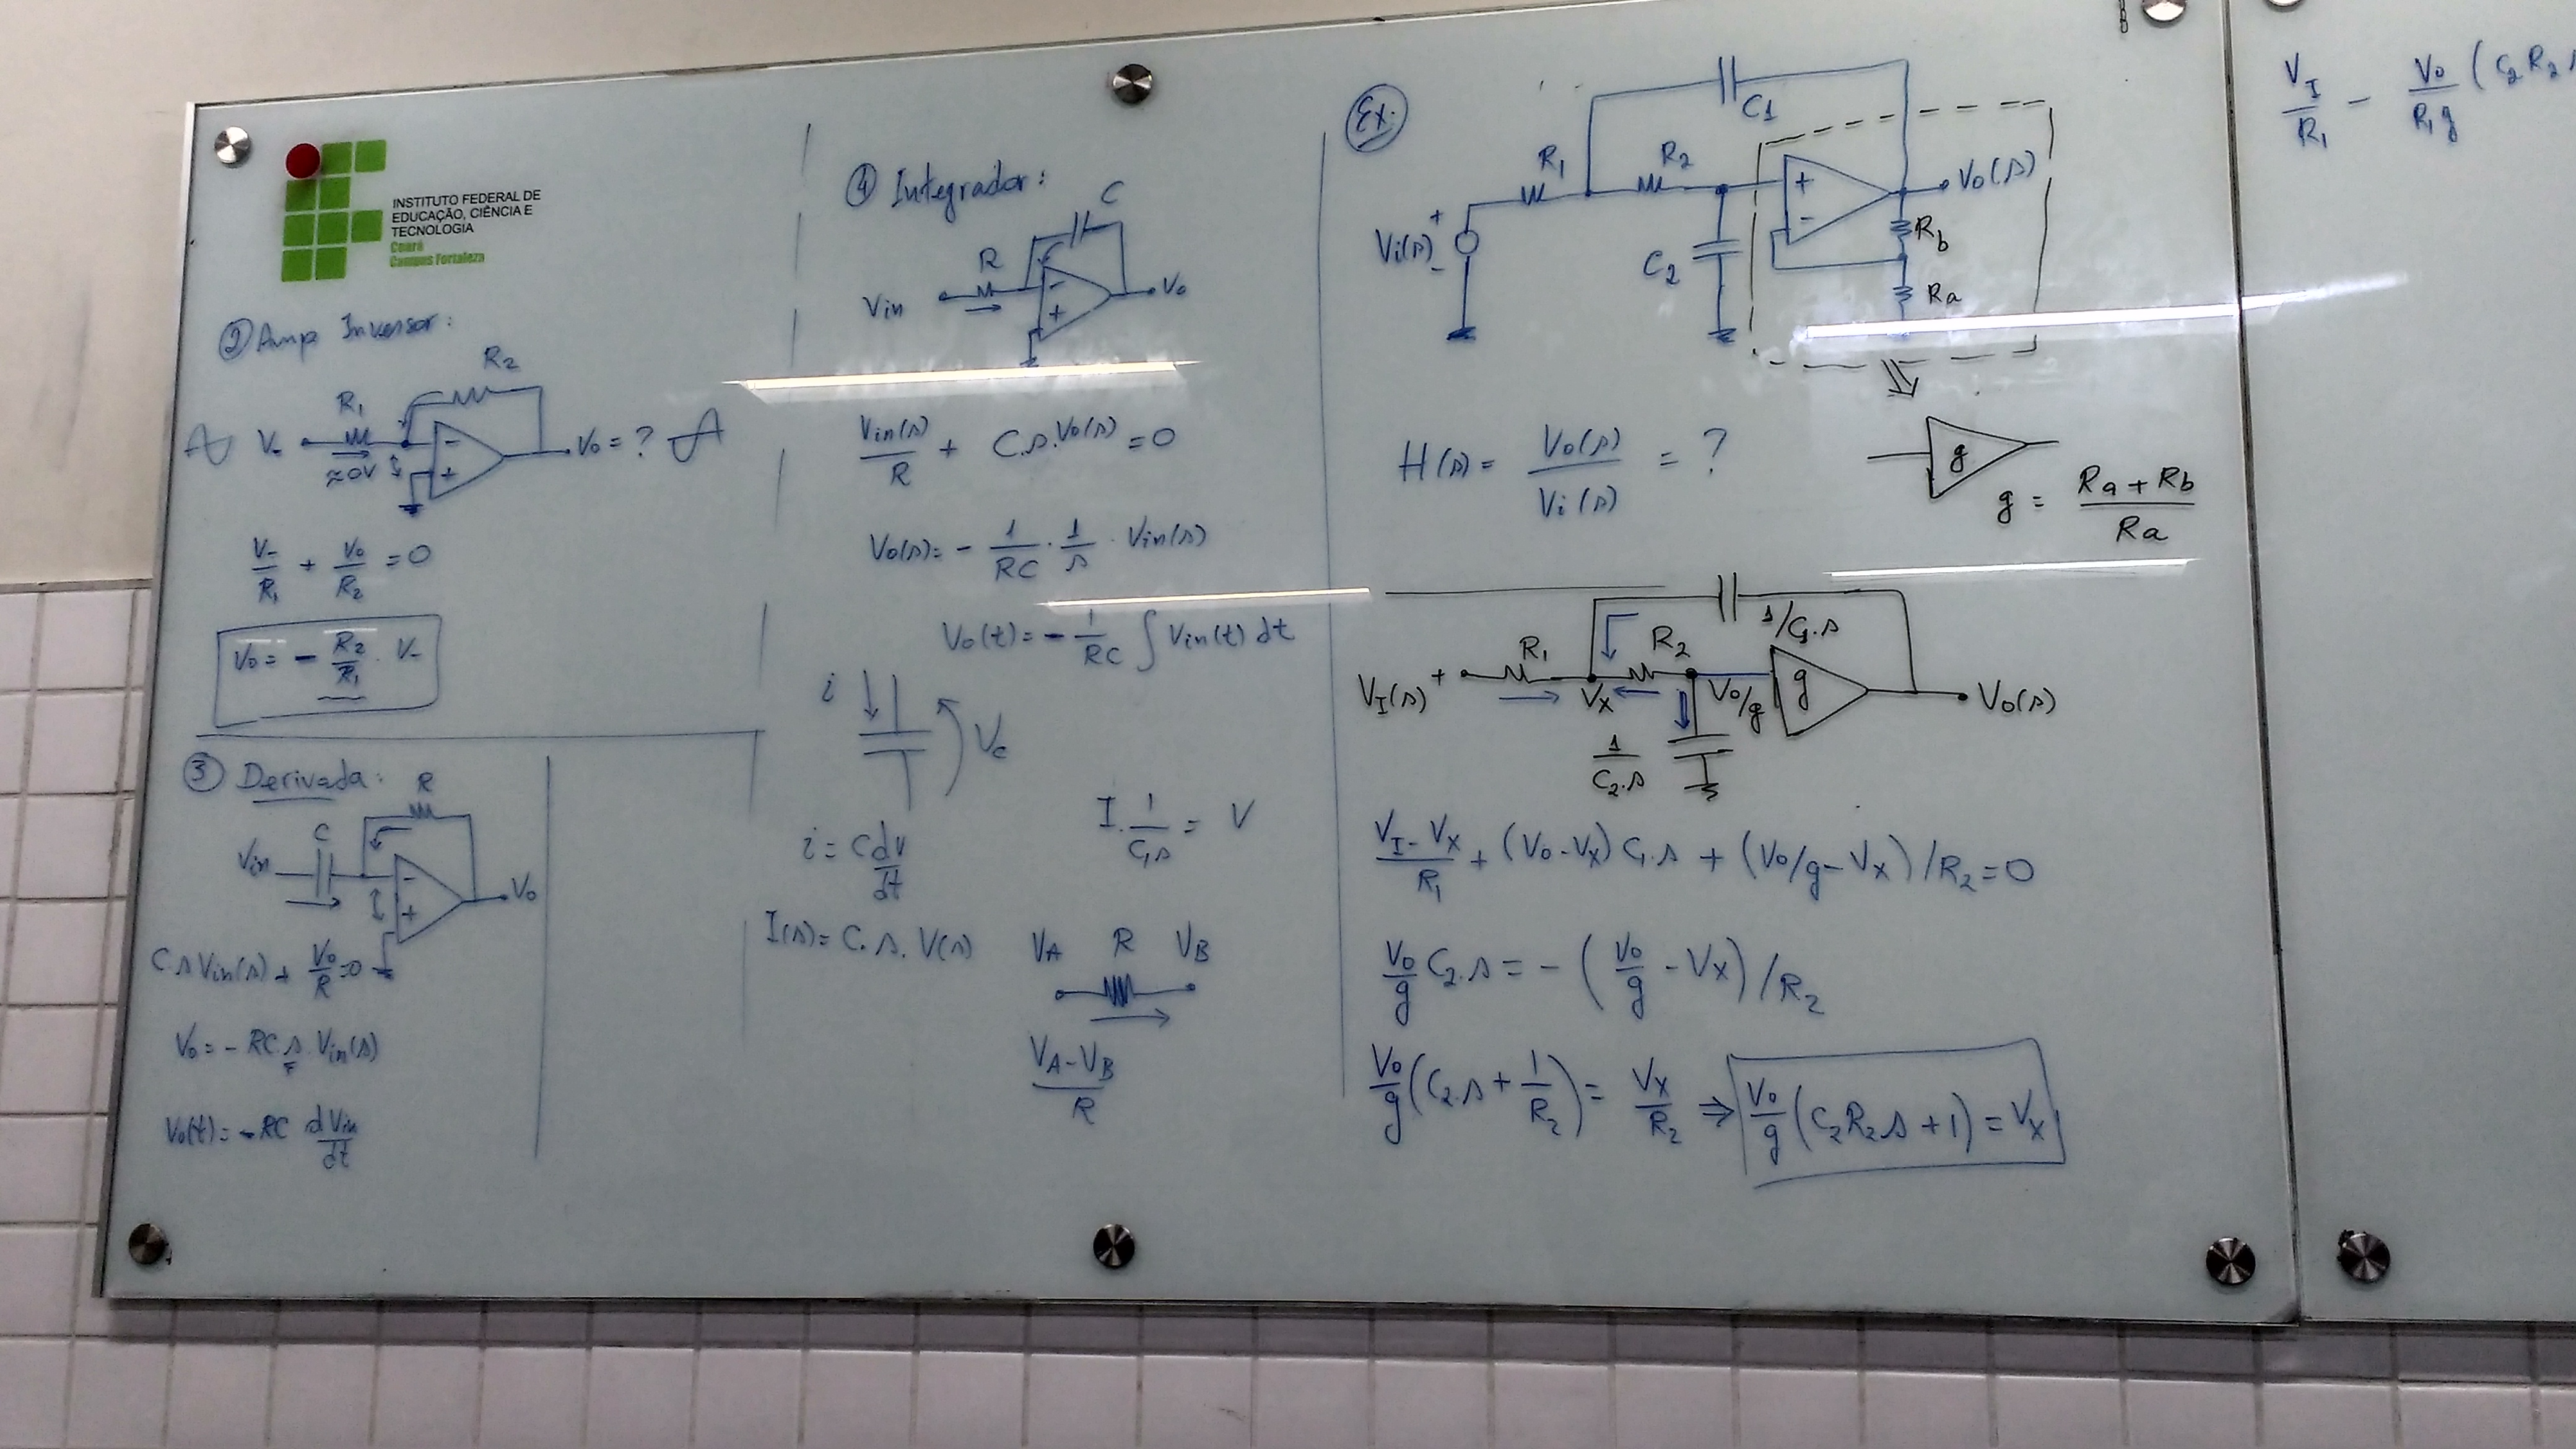 INSTITUTO FEDERAL DE
EDUCAÇÃO, CIÊNCIA E
TECNOLOGIA
Ceará
Campus Fortaleza
② Amp Inversor:
R2
R1
V-
≈0V
-
+
Vo = ?
V-/R1 + Vo/R2 = 0
Vo = - R2/R1 . V-
③ Derivada:
R
C
Vin
-
+
Vo
C s Vin(s) + Vo/R = 0
Vo = - RC s Vin(s)
Vo(t) = - RC dVin/dt
④ Integrador:
C
R
Vin
-
+
Vo
Vin(s)/R + C.s.Vo(s) = 0
Vo(s) = - 1/RC . 1/s . Vin(s)
Vo(t) = - 1/RC ∫ Vin(t) dt
i
Vc
i = C dv/dt
I . 1/C.s = V
I(s) = C. s. V(s)
VA R VB
VA-VB/R
Ex.
C1
R1
R2
+
-
Vo(s)
Vi(s)
+
-
C2
Rb
Ra
H(s) = Vo(s)/Vi(s) = ?
g
g = Ra + Rb/Ra
1/C1.s
R1
R2
VI(s) +
Vx
Vo/g
g
Vo(s)
1/C2.s
VI-Vx/R1 + (Vo-Vx) C1.s + (Vo/g-Vx)/R2 = 0
Vo/g C2.s = - (Vo/g - Vx)/R2
Vo/g (C2.s + 1/R2) = Vx/R2 ⇒ Vo/g (C2R2s + 1) = Vx
VI/R1 - Vo/R1g (C2R2s